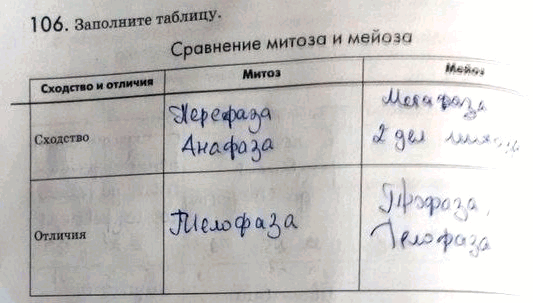 106. Заполните таблицу.
Сравнение митоза и мейоза
Сходство и отличия Митоз Мейоз
Сходство
Перефаза
Анафаза
Метафаза
2 дел
Отличия
Телофаза
Профаза,
Телофаза